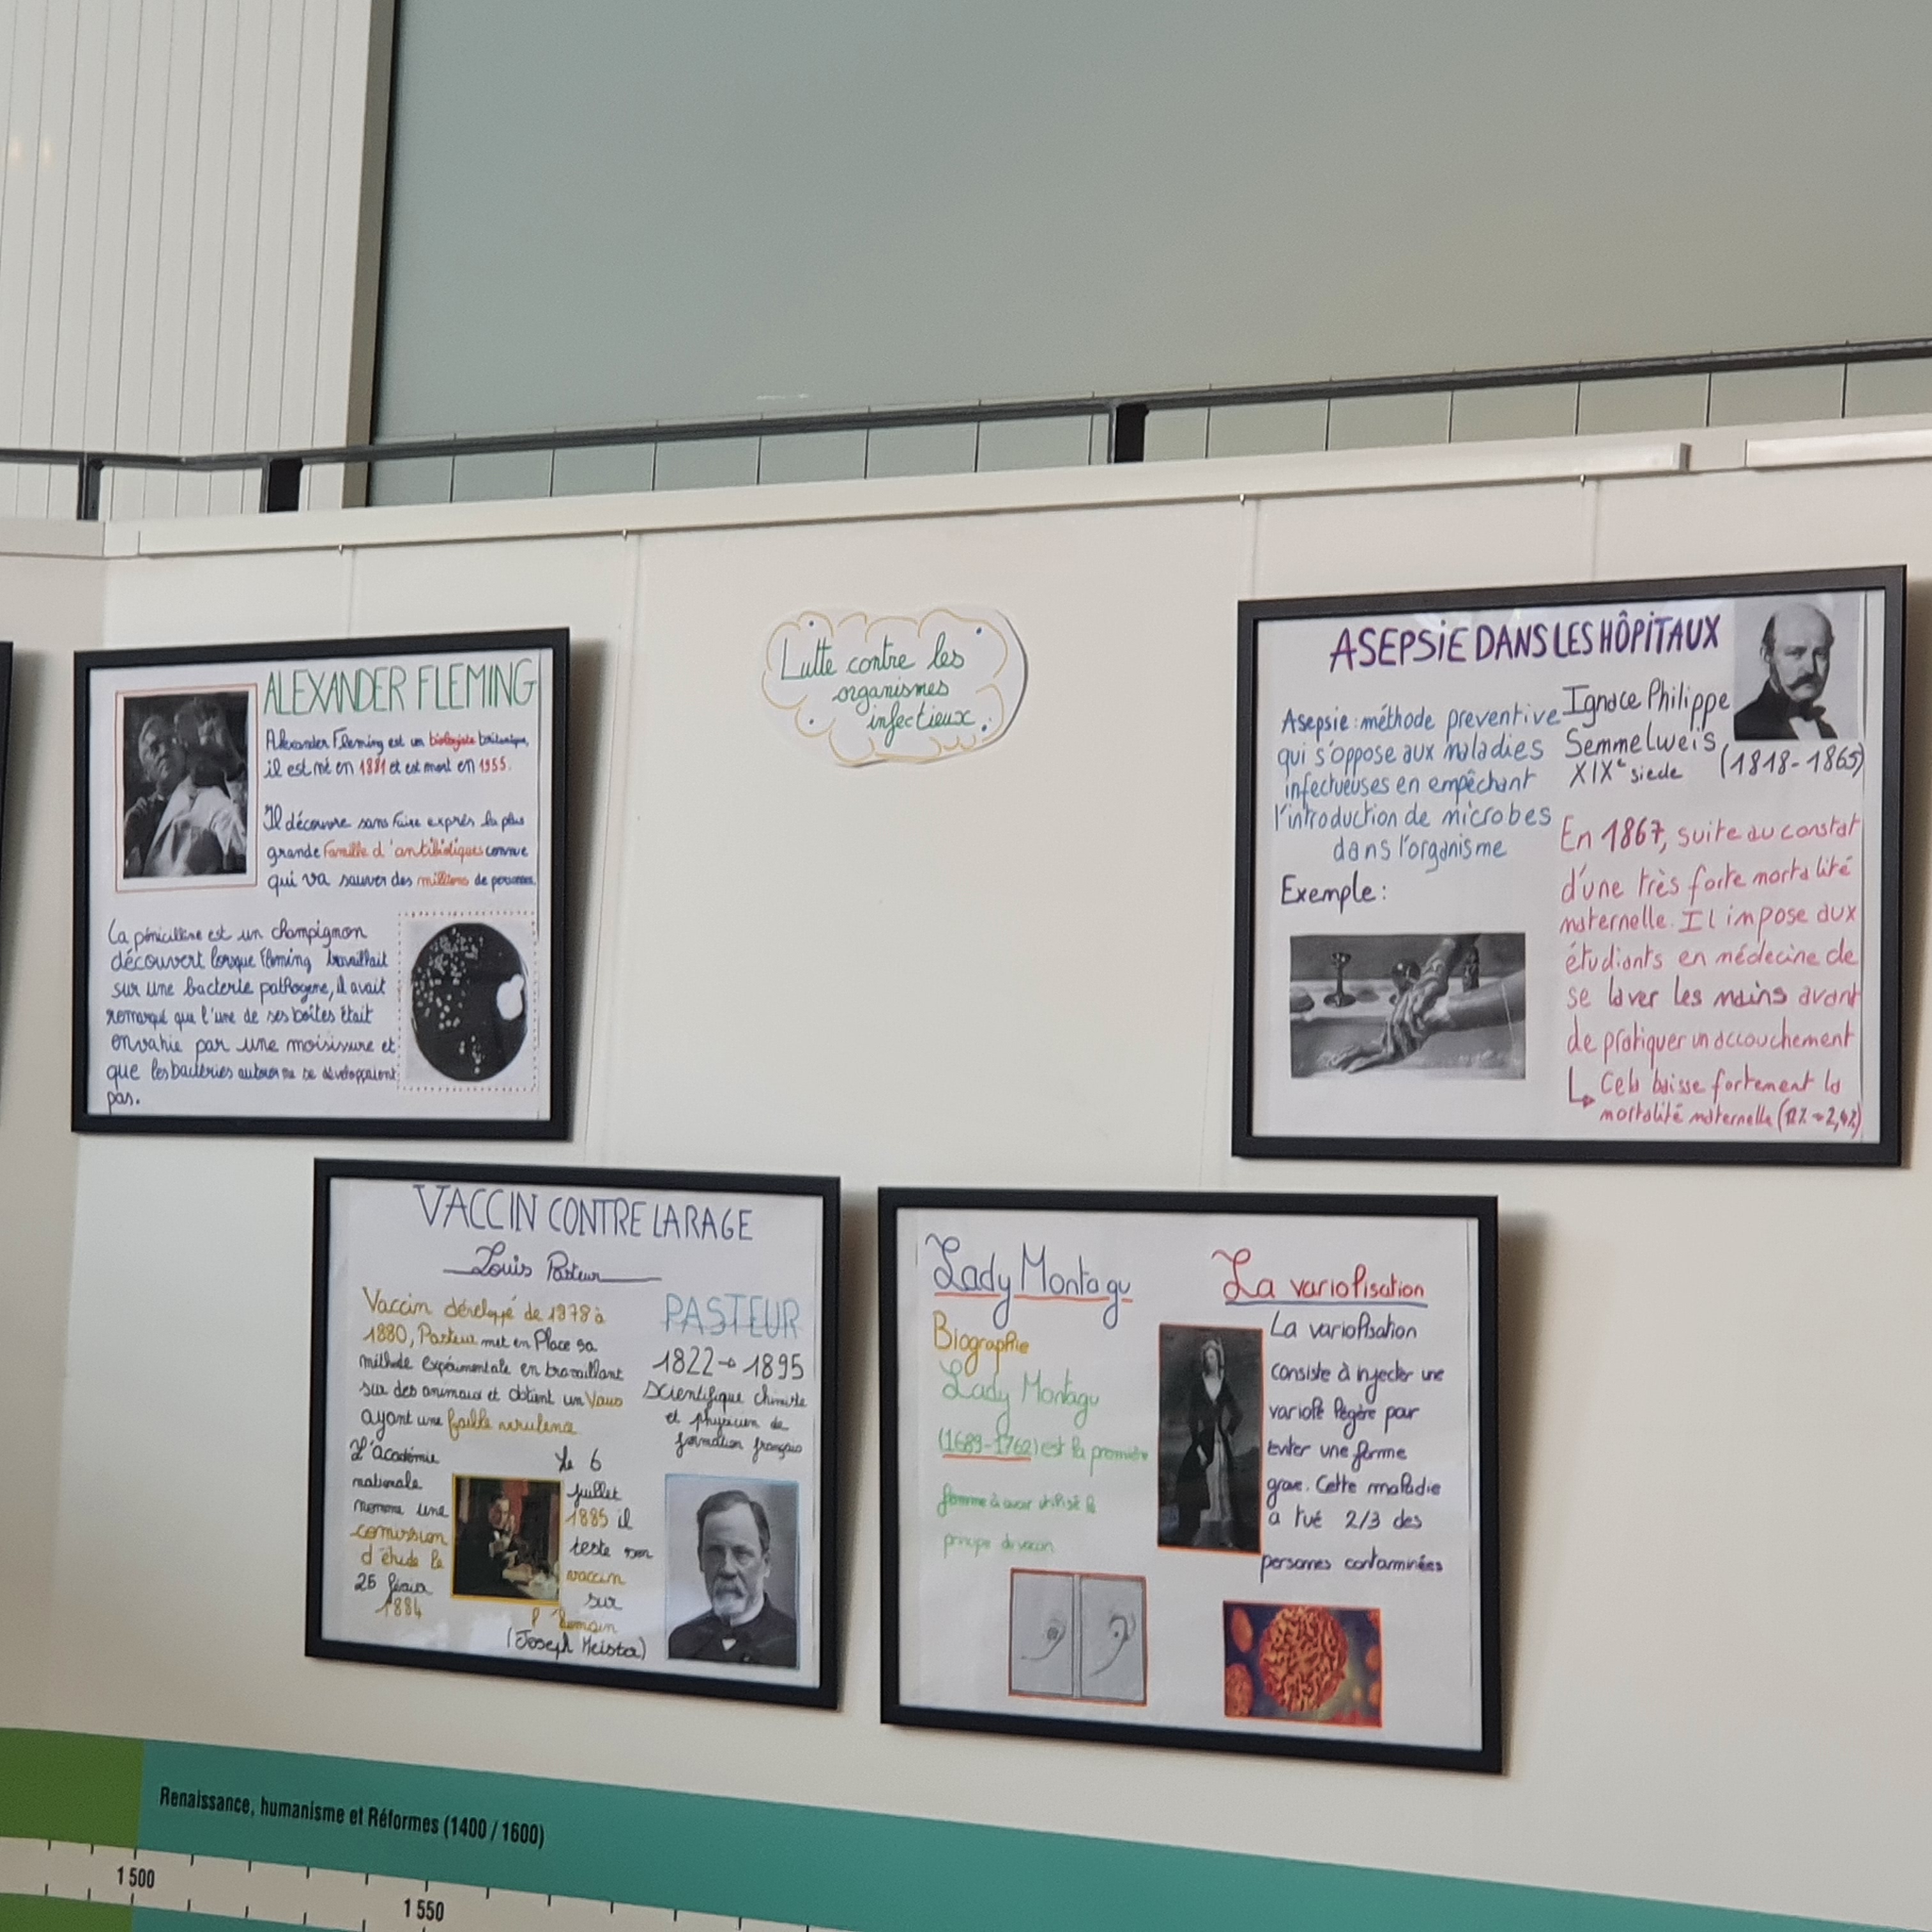 Lutte contre les
organismes
infectieux.
ALEXANDER FLEMING
Alexander Fleming est un biologiste britannique,
il est né en 1881 et est mort en 1955.
Il découvre sans faire exprès la plus
grande famille d'antibiotiques connue
qui va sauver des millions de personnes.
La pénicilline est un champignon
découvert lorsque Fleming travaillait
sur une bacterie pathogene, il avait
remarqué que l'une de ses boîtes était
envahie par une moisissure et
que les bactéries autour ne se développaient
pas.
ASEPSIE DANS LES HÔPITAUX
Asepsie : méthode preventive
qui s'oppose aux maladies
infectueuses en empêchant
l'introduction de microbes
dans l'organisme
Exemple :
Ignace Philippe
Semmelweis
XIXe siecle (1818-1865)
En 1867, suite au constat
d'une très forte mortalité
maternelle. Il impose aux
étudiants en médecine de
se laver les mains avant
de pratiquer un accouchement
↳ Cela baisse fortement la
mortalité maternelle (12% → 2,4%)
VACCIN CONTRE LA RAGE
Louis Pasteur
Vaccin développé de 1878 à
1880, Pasteur met en Place sa
méthode expérimentale en travaillant
sur des animaux et obtient un
ayant une faible virulence
L'académie
nationale
nomme une
comission
d'étude le
25 février
1884
Le 6
juillet
1885 il
teste son
vaccin
sur
l'humain
(Joseph Meister)
PASTEUR
1822 → 1895
Scientifique chimiste
et physicien de
formation français
Lady Montagu
Biographie
Lady Montagu
(1689-1762) est la première
femme à avoir utilisé le
principe du vaccin
La variolisation
La variolisation
consiste à injecter une
variole légère pour
éviter une forme
grave. Cette maladie
a tué 2/3 des
personnes contaminées
Renaissance, humanisme et Réformes (1400 / 1600)
1 500
1 550